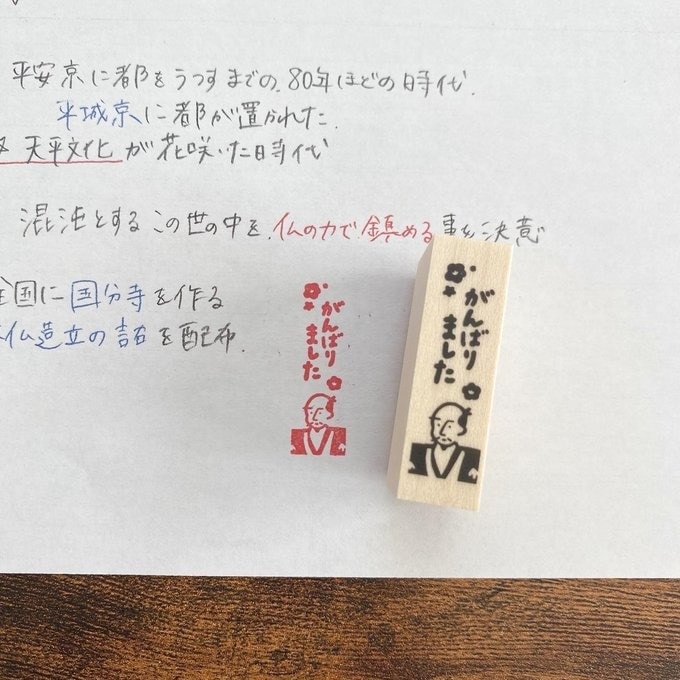 平安京に都をうつすまでの、80年ほどの時代.
平城京に都が置かれた.
天平文化が花咲いた時代
混沌とするこの世の中を、仏の力で鎮める事を決意
全国に国分寺を作る
仏造立の詔を配布.
がんばり
ました
がんばり
ました